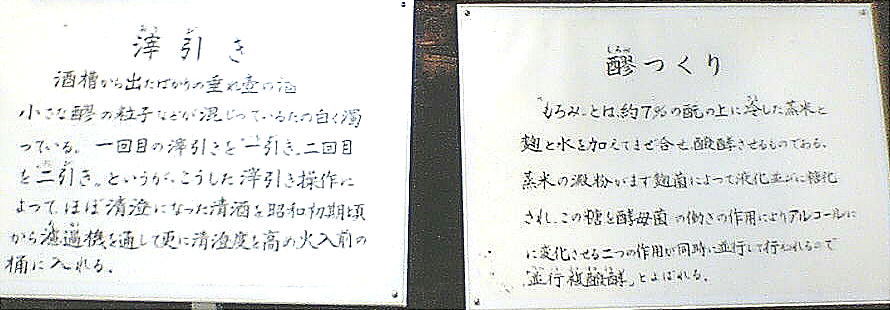 滓引き
酒槽から出たばかりの垂れ壺の酒
小さな醪の粒子などが混じっているたの白く濁
っている。一回目の滓引きを"一引き"二回目
を"二引き"というが、こうした滓引き操作に
よって、ほぼ清澄になった清酒を昭和初期頃
から濾過機を通して更に清澄度を高め火入前の
桶に入れる。
醪つくり
"もろみ"とは、約7%の酛の上に冷した蒸米と
麹と水を加えてまぜ合せ、醗酵させるものである。
蒸米の澱粉がまず麹菌によって液化並びに糖化
され、この糖を酵母菌の働きの作用によりアルコールに
に変化させる二つの作用が同時に並行して行われるので
"並行複醗酵"とよばれる。